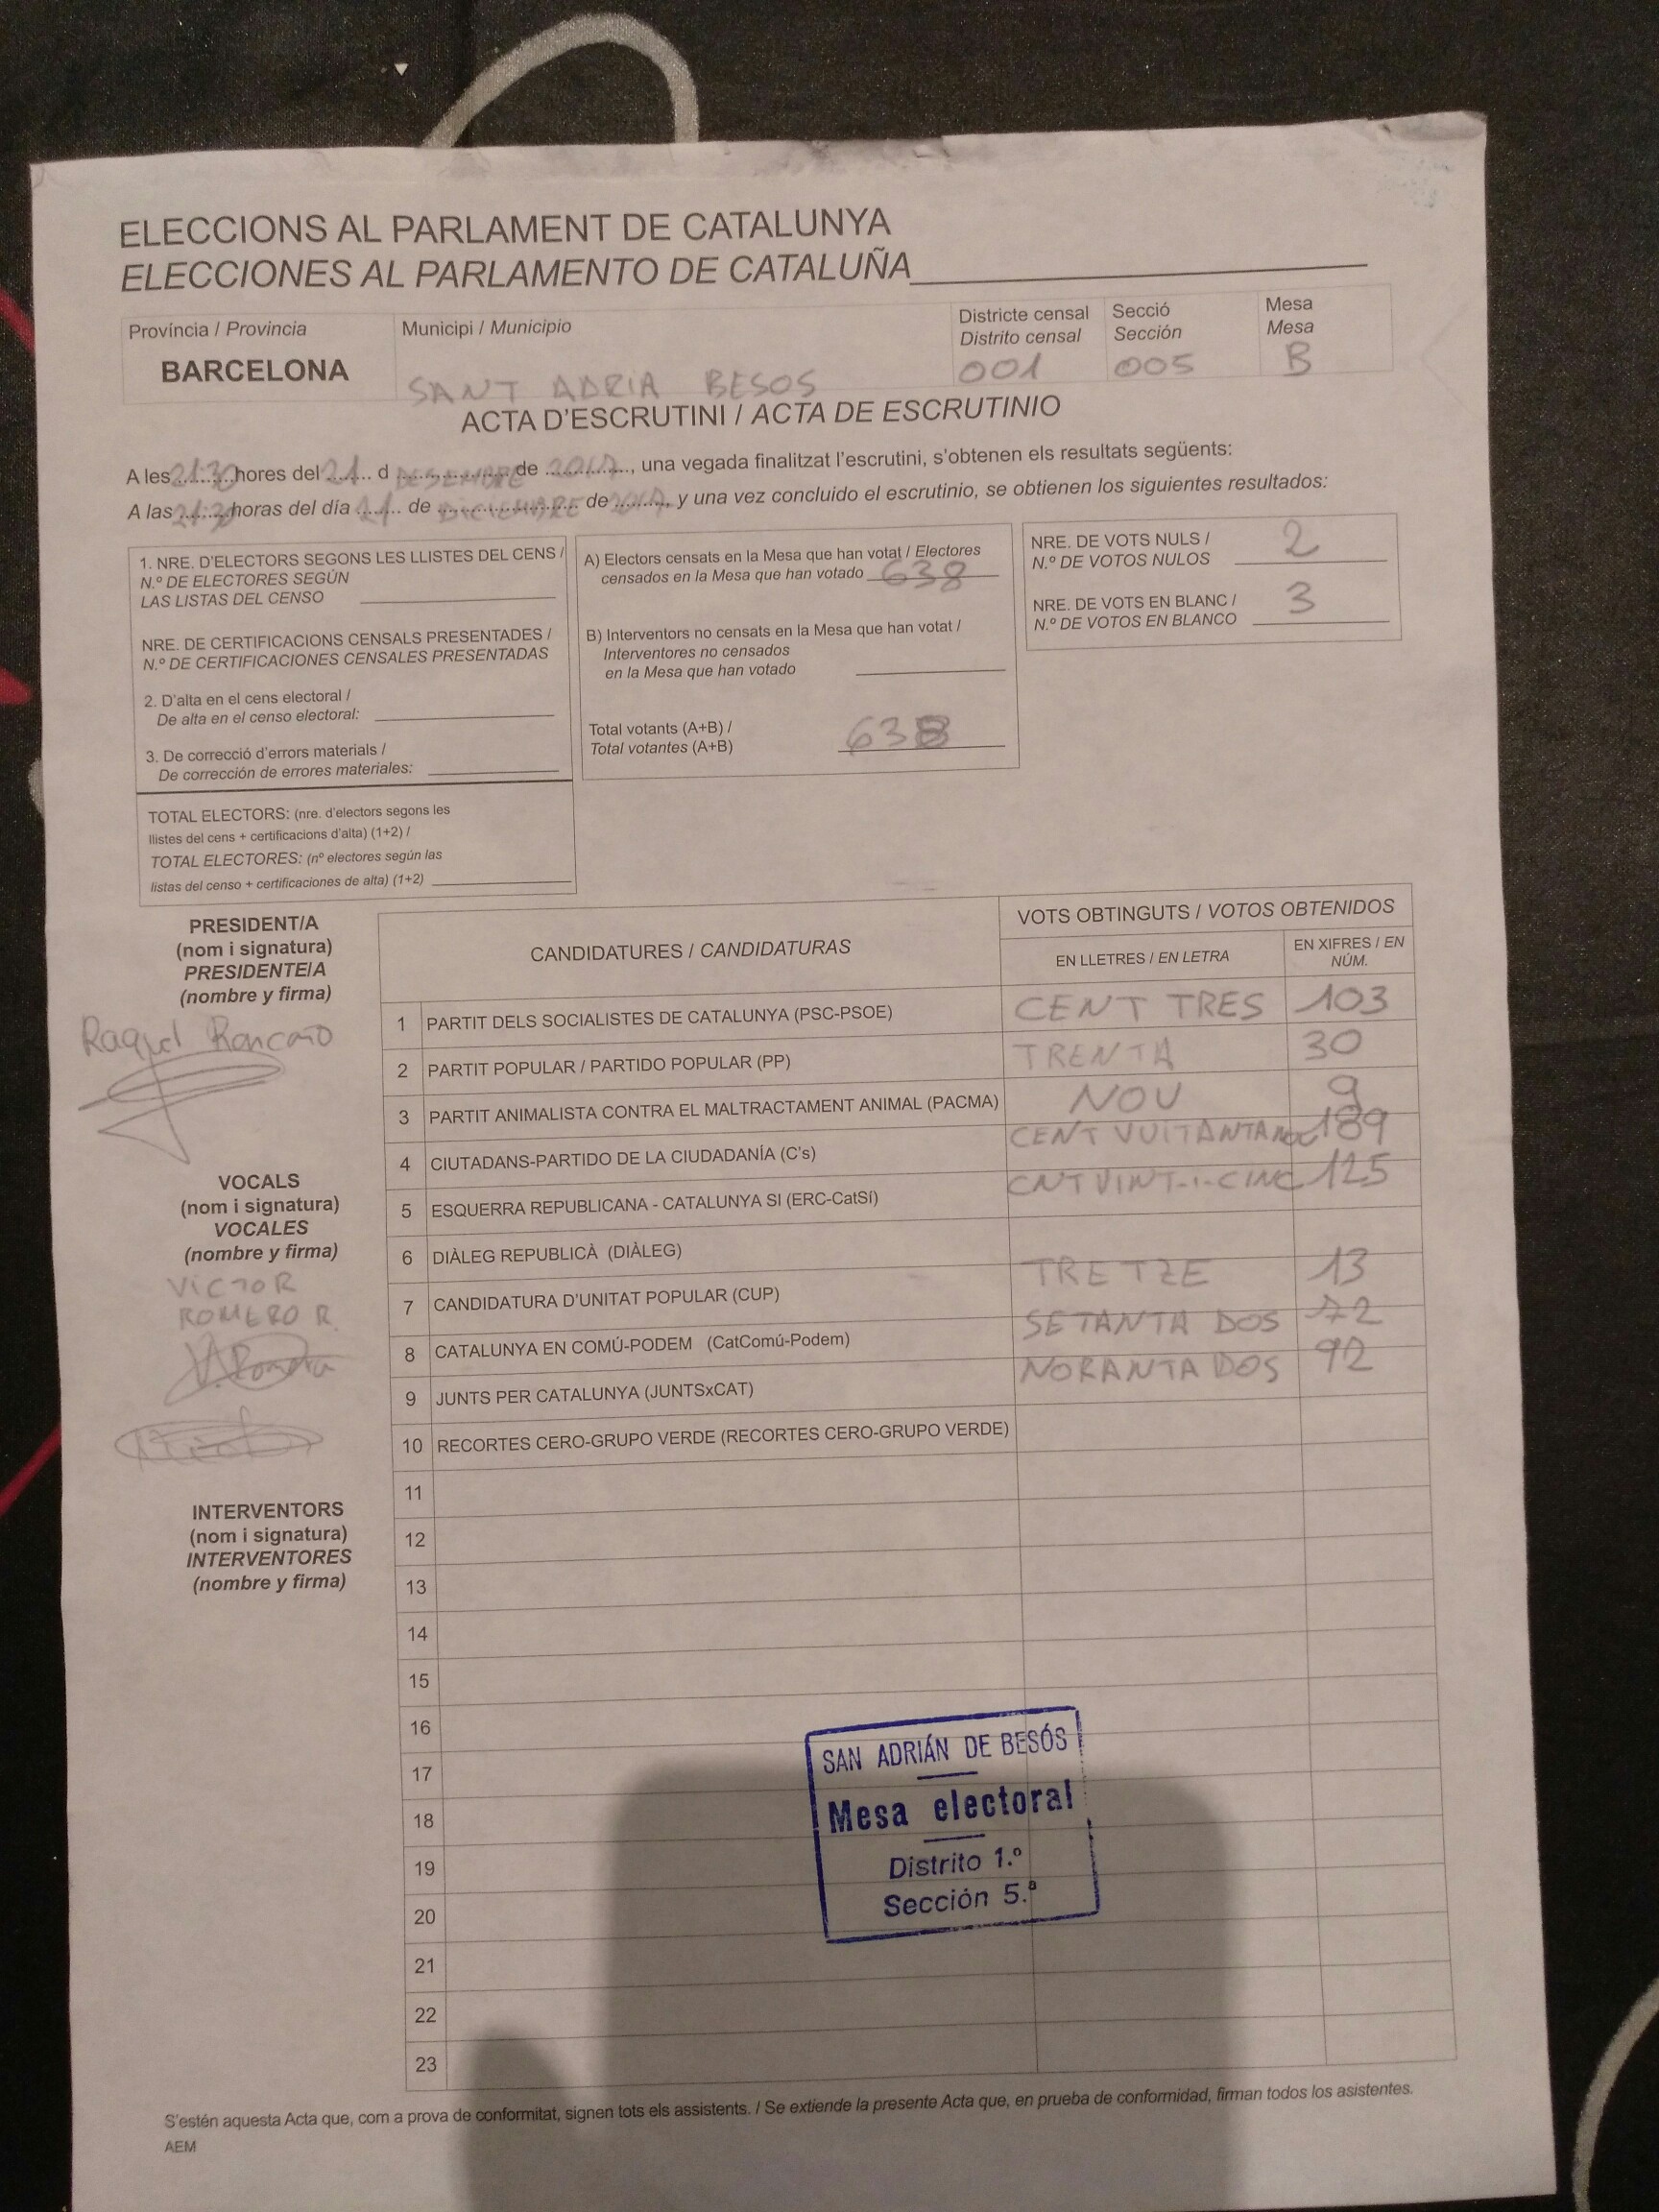 ELECCIONS AL PARLAMENT DE CATALUNYA
ELECCIONES AL PARLAMENTO DE CATALUÑA
Província / Provincia
BARCELONA
Municipi / Municipio
SANT ADRIA BESOS
Districte censal
Distrito censal
001
Secció
Sección
005
Mesa
Mesa
B
ACTA D'ESCRUTINI / ACTA DE ESCRUTINIO
A les 21:30 hores del 21 d DESEMBRE de 2017, una vegada finalitzat l'escrutini, s'obtenen els resultats següents:
A las 21:30 horas del día 21 de DICIEMBRE de 2017, y una vez concluido el escrutinio, se obtienen los siguientes resultados:
1. NRE. D'ELECTORS SEGONS LES LLISTES DEL CENS /
N.º DE ELECTORES SEGÚN
LAS LISTAS DEL CENSO
NRE. DE CERTIFICACIONS CENSALS PRESENTADES /
N.º DE CERTIFICACIONES CENSALES PRESENTADAS
2. D'alta en el cens electoral /
De alta en el censo electoral:
3. De correcció d'errors materials /
De corrección de errores materiales:
TOTAL ELECTORS: (nre. d'electors segons les
llistes del cens + certificacions d'alta) (1+2) /
TOTAL ELECTORES: (nº electores según las
listas del censo + certificaciones de alta) (1+2)
A) Electors censats en la Mesa que han votat / Electores
censados en la Mesa que han votado 638
B) Interventors no censats en la Mesa que han votat /
Interventores no censados
en la Mesa que han votado
Total votants (A+B) /
Total votantes (A+B) 638
NRE. DE VOTS NULS /
N.º DE VOTOS NULOS 2
NRE. DE VOTS EN BLANC /
N.º DE VOTOS EN BLANCO 3
PRESIDENT/A
(nom i signatura)
PRESIDENTE/A
(nombre y firma)
Raquel
VOCALS
(nom i signatura)
VOCALES
(nombre y firma)
VICTOR
ROMERO R.
INTERVENTORS
(nom i signatura)
INTERVENTORES
(nombre y firma)
CANDIDATURES / CANDIDATURAS
VOTS OBTINGUTS / VOTOS OBTENIDOS
EN LLETRES / EN LETRA
EN XIFRES / EN
NÚM.
1 PARTIT DELS SOCIALISTES DE CATALUNYA (PSC-PSOE) CENT TRES 103
2 PARTIT POPULAR / PARTIDO POPULAR (PP) TRENTA 30
3 PARTIT ANIMALISTA CONTRA EL MALTRACTAMENT ANIMAL (PACMA) NOU 9
4 CIUTADANS-PARTIDO DE LA CIUDADANÍA (C's) CENT VUITANTANOU 189
5 ESQUERRA REPUBLICANA - CATALUNYA SI (ERC-CatSí) CNT VINT-I-CINC 125
6 DIÀLEG REPUBLICÀ (DIÀLEG)
7 CANDIDATURA D'UNITAT POPULAR (CUP) TRETZE 13
8 CATALUNYA EN COMÚ-PODEM (CatComú-Podem) SETANTA DOS 72
9 JUNTS PER CATALUNYA (JUNTSxCAT) NORANTA DOS 92
10 RECORTES CERO-GRUPO VERDE (RECORTES CERO-GRUPO VERDE)
11
12
13
14
15
16
17
18
19
20
21
22
23
SAN ADRIÁN DE BESÓS
Mesa electoral
Distrito 1.º
Sección 5.ª
S'estén aquesta Acta que, com a prova de conformitat, signen tots els assistents. / Se extiende la presente Acta que, en prueba de conformidad, firman todos los asistentes.
AEM